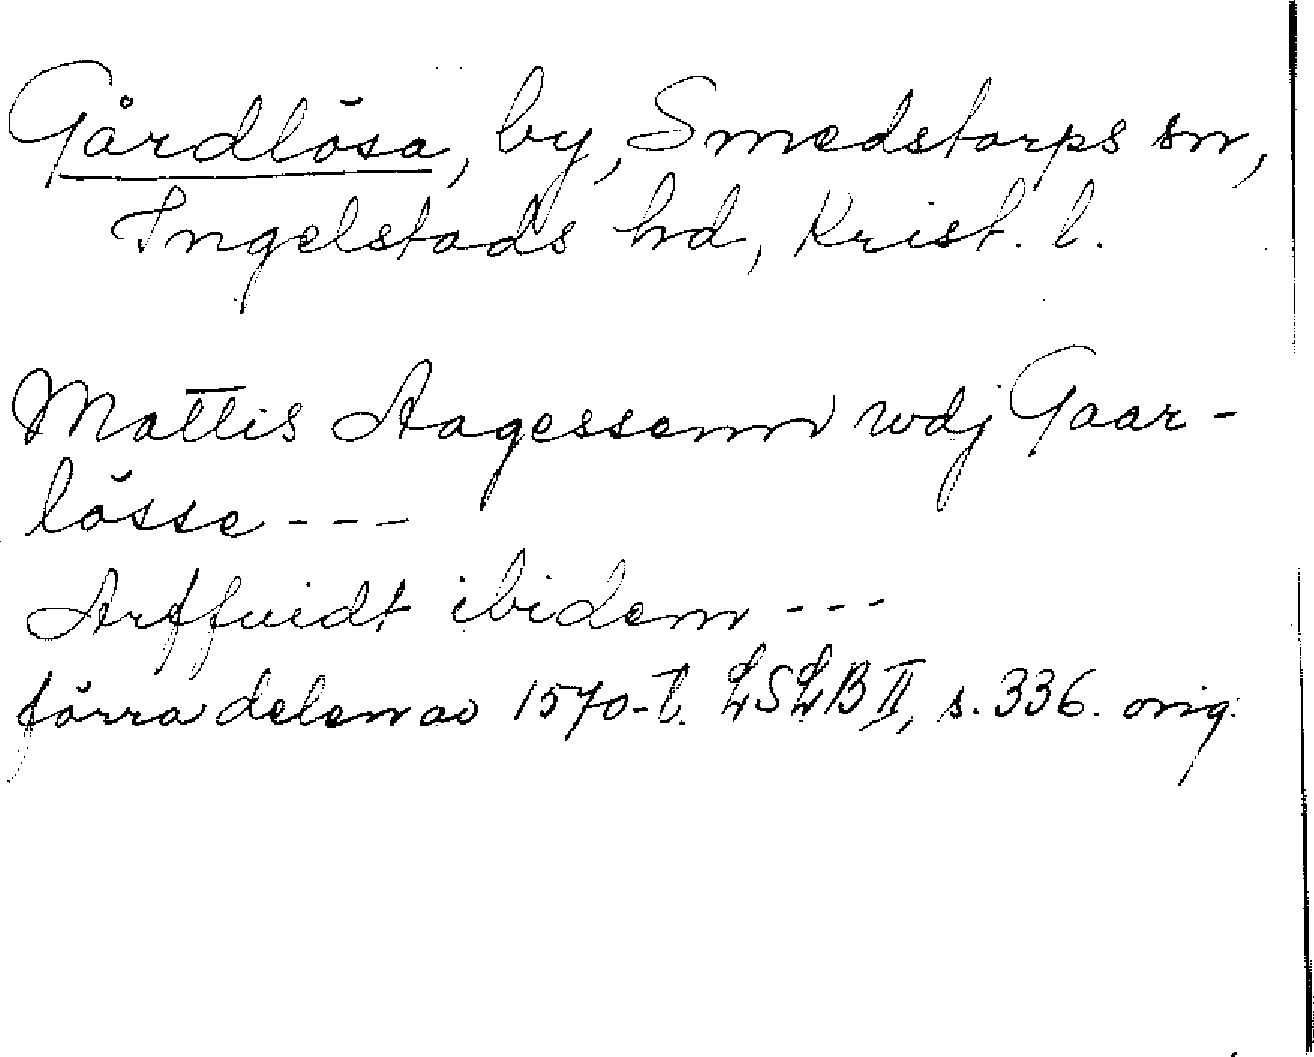 Gårdlösa, by, Smedstorps sn,
Ingelstads hd, Krist. l.
Mattis Aagessenn wdj Gaar-
lösse ---
Arffuidt ibidem ---
förra delen av 1570-t. LSLB II, s. 336. orig.